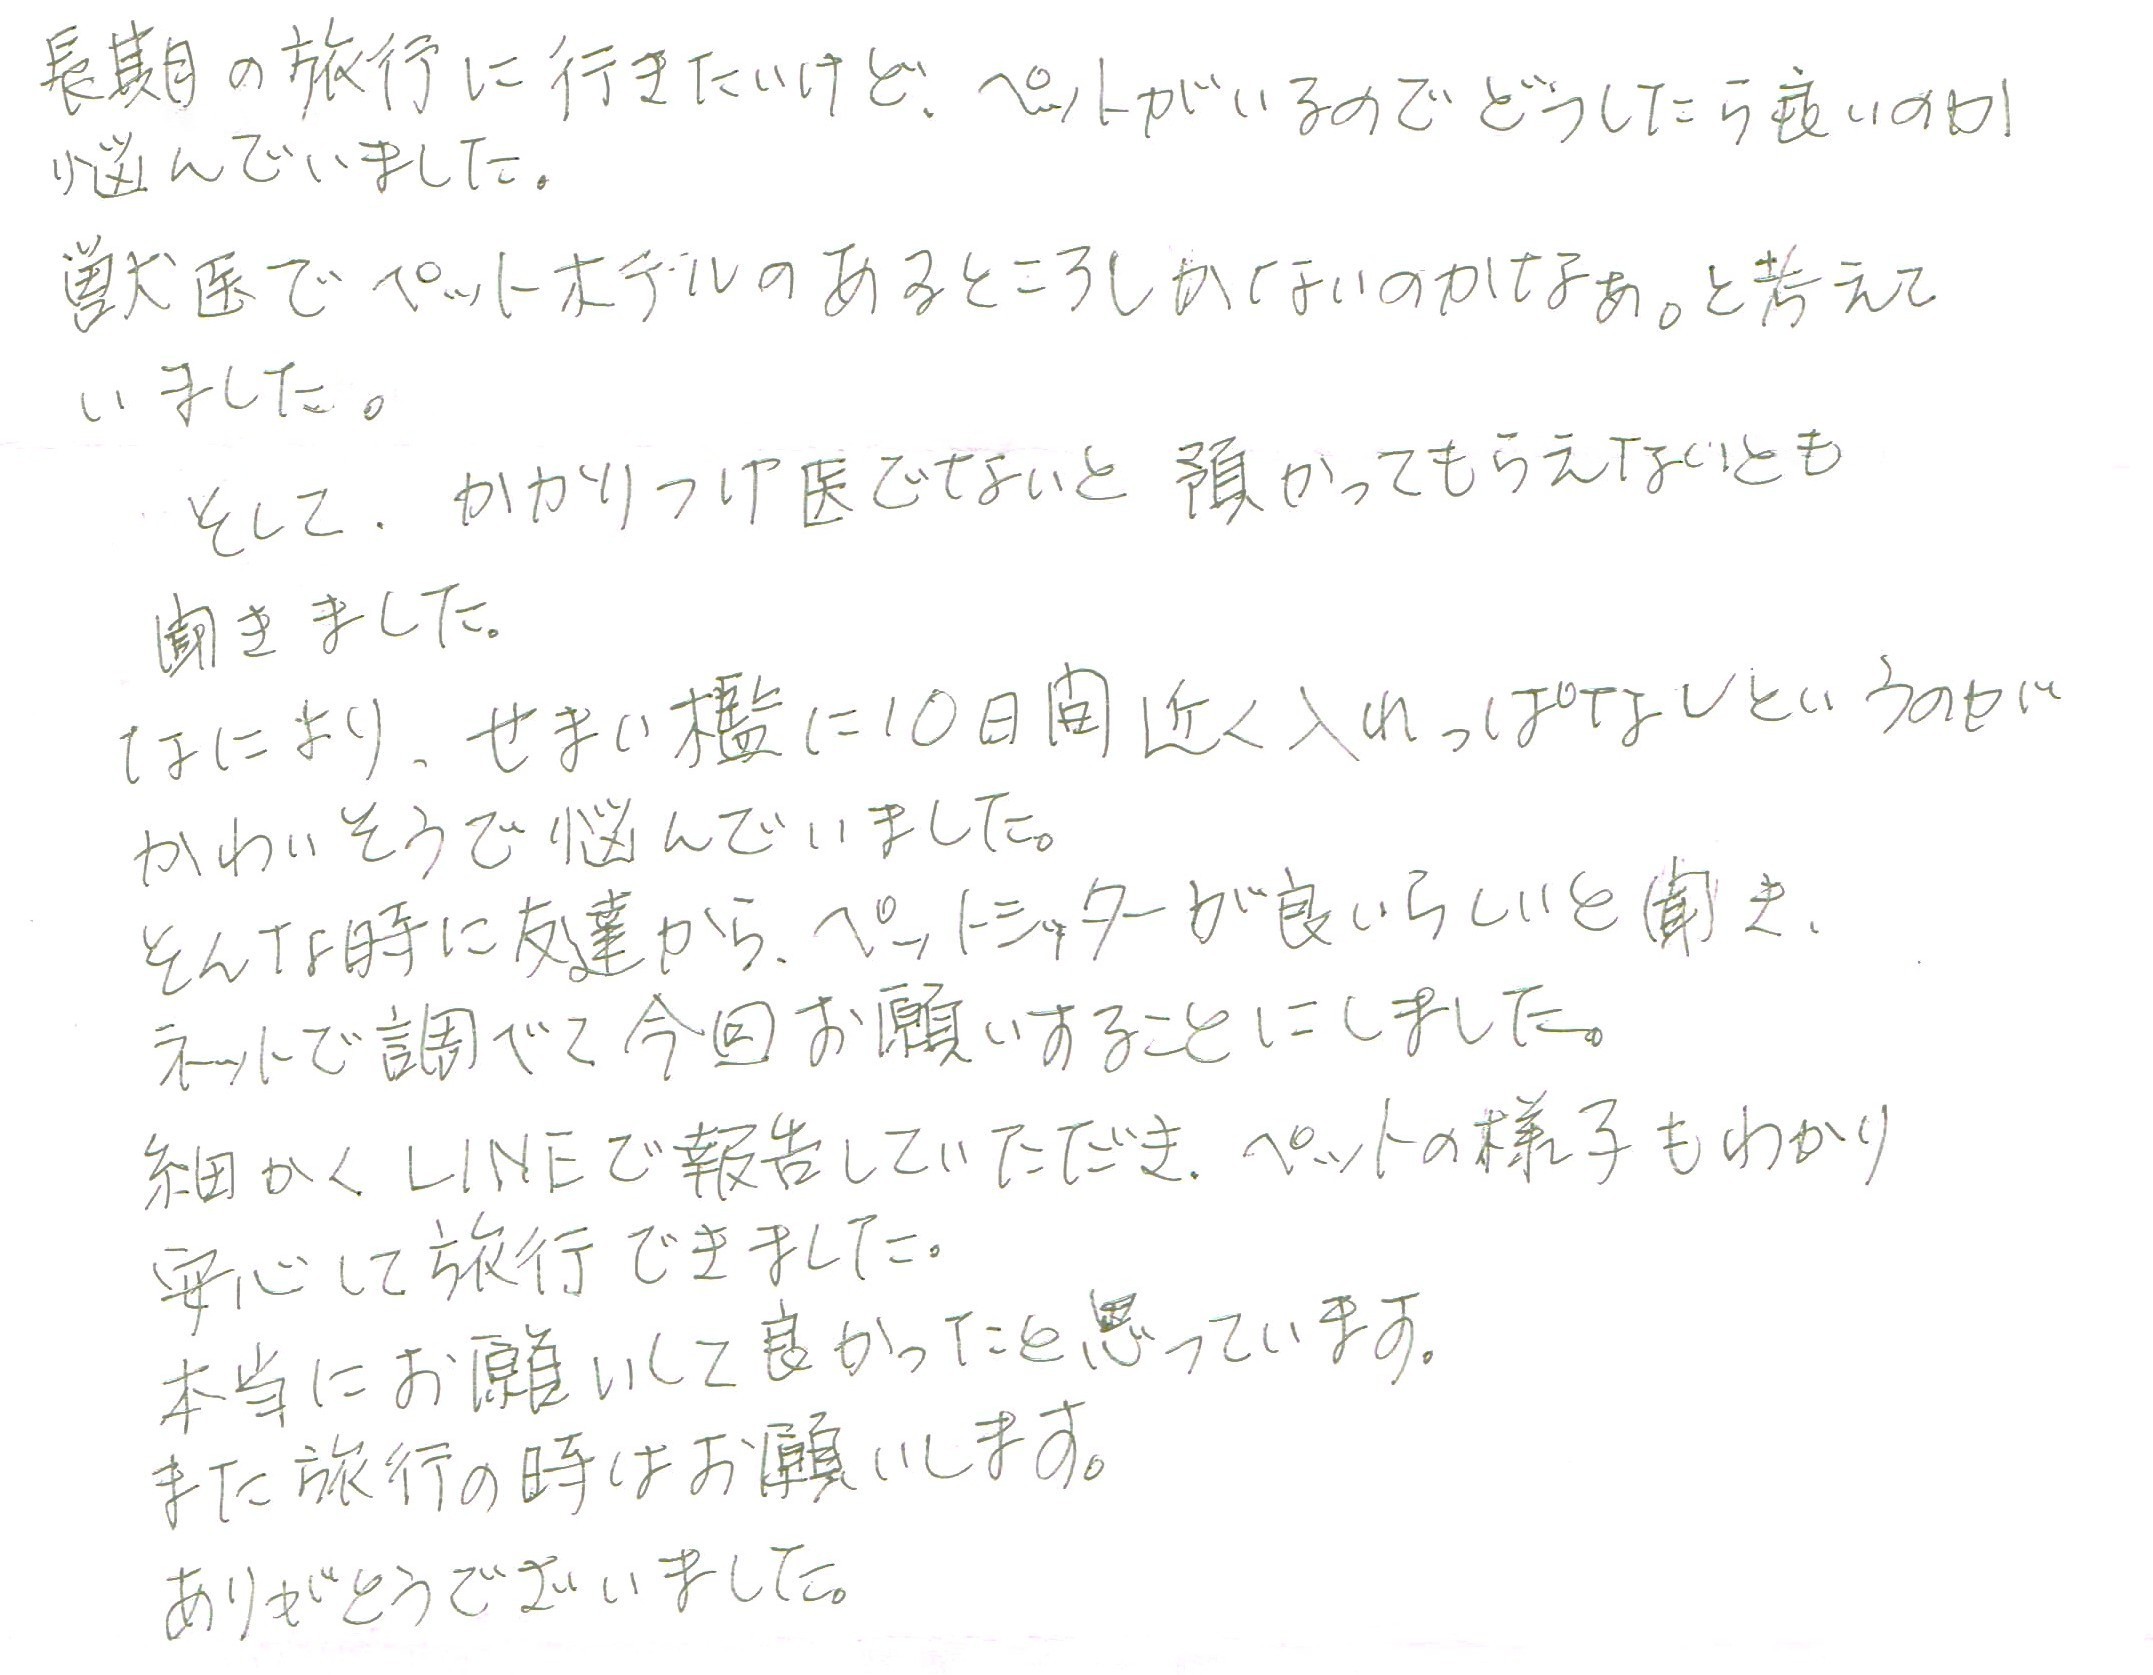 長期の旅行に行きたいけど、ペットがいるのでどうしたら良いのか
悩んでいました。
獣医でペットホテルのあるところしかないのかなぁ。と考えて
いました。
そして、かかりつけ医でないと預かってもらえないとも
聞きました。
なにより、せまい檻に10日間近く入れっぱなしというのが
かわいそうで悩んでいました。
そんな時に友達から、ペットシッターが良いらしいと聞き、
ネットで調べて今回お願いすることにしました。
細かくLINEで報告していただき、ペットの様子もわかり
安心して旅行できました。
本当にお願いして良かったと思っています。
また旅行の時はお願いします。
ありがとうございました。